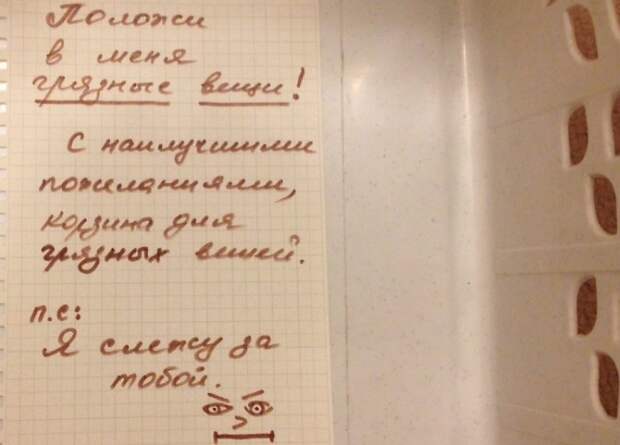 Положи
в меня
грязные вещи!
С наилучшими
пожеланиями,
корзина для
грязных вещей.
п.с:
Я слежу за
тобой.